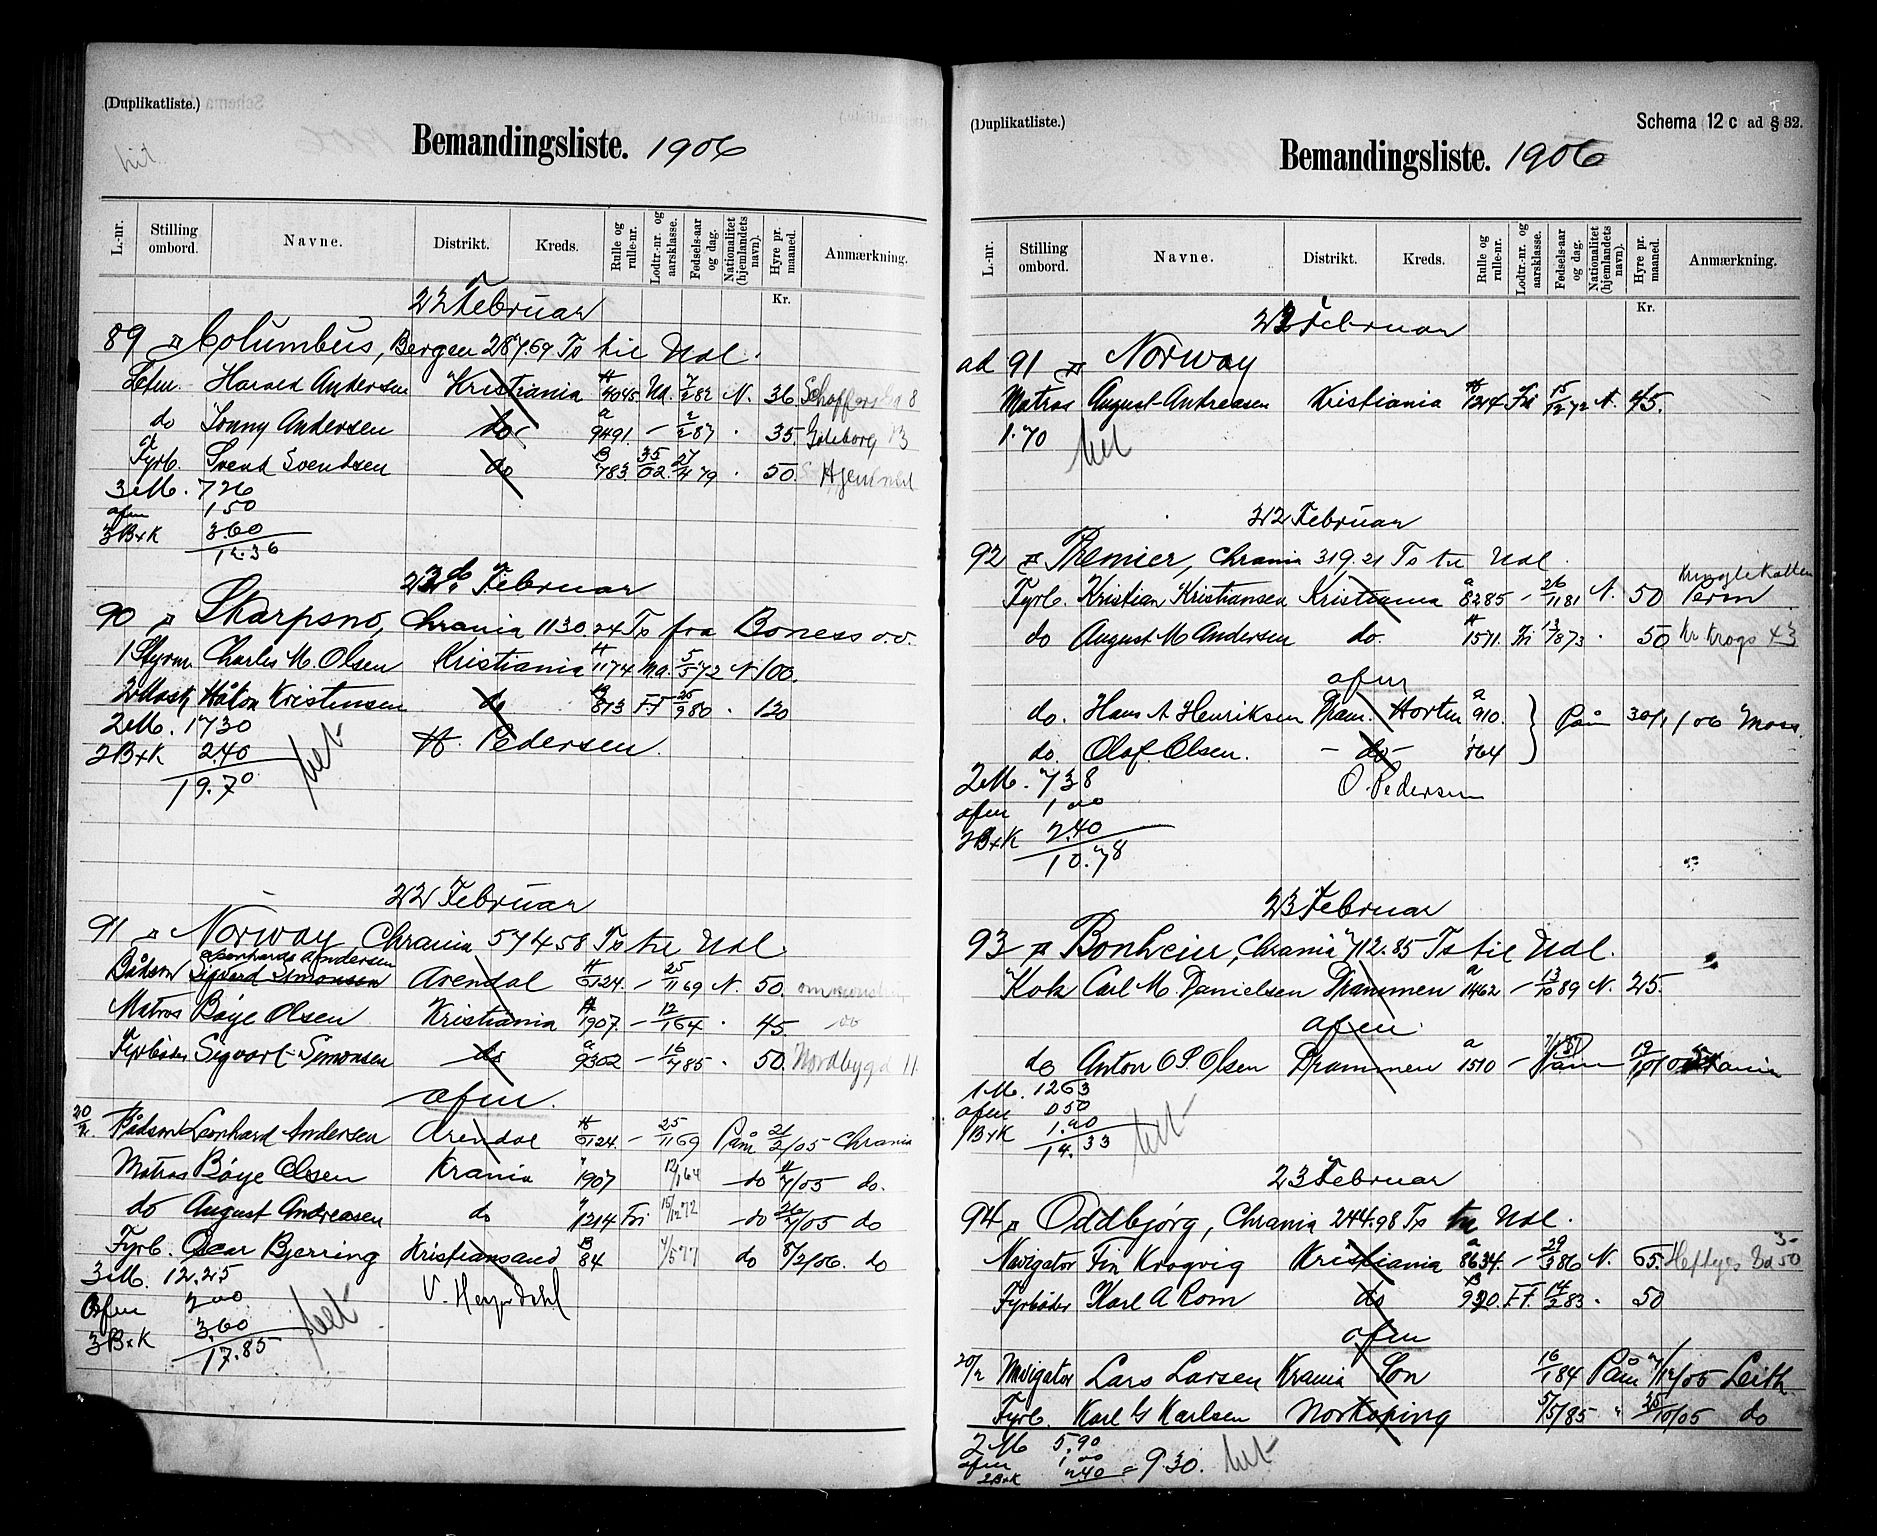 (Duplikatliste.)
Bemandingsliste. 1906
L.-nr. Stilling ombord. Navne. Distrikt. Kreds. Rulle og rulle-nr. Lodtr.-nr. og aarsklasse. Fødsels-aar og dag. Nationalitet (hjemlandets navn). Hyre pr. maaned. Anmærkning.
Kr.
22 Februar
89 Columbus, Bergen 287.69 Ts til Udl.
Harald Andersen Kristiania 4045 82 N. 36.
do Sonny Andersen do 9491 – 2/2 87 35. Goteborg 13
Fyrb. Svend Svendsen do B 783 35/02 27/4 79 50.
3 M. 7 26
afm 1 50
3 B+K 3.60
12.36
23 Februar
90 Skarpsno, Chrania 1130.24 Ts fra Boness o.v.
1 Styrm Charles M. Olsen Kristiania 1174 5/5 72 N 100.
2 Mask Håkon Kristensen do 813 FF 25/9 80 120
2 M. 17 30
2 B+K 2.40
19.70
H. Pedersen.
22 Februar
91 Norway, Chrania 574 58 Ts til Udl.
Leonhard Andersen
Bådsm Sigvard Simonsen Arendal 6124. – 25/11 69 N. 50.
Matros Böye Olsen Kristiania 1907. – 12/1 64 45. do
Fyrböder Sigvart Simonsen do a 9302 – 16/7 85 50. Nordbygd 11
afm.
20/2 Bådsm Leonhard Andersen Arendal 6124. – 25/11 69 Påm 21/2/05 Chrania
Matros Böye Olsen Krania 1907 12/1 64 do /7/05 do.
do August Andreasen do 1214 Fri 15/12 72 do 26/7/05 do
Fyrb. Oscar Bjerring Kristiansand B 84 7/5 77 do 8/2/06. do
3 M. 12.25
Afm 2 00
3 B+K 3.60
17.85
(Duplikatliste.) Schema 12 c ad § 32.
Bemandingsliste. 1906
L.-nr. Stilling ombord. Navne. Distrikt. Kreds. Rulle og rulle-nr. Lodtr.-nr. og aarsklasse. Fødsels-aar og dag. Nationalitet (hjemlandets navn). Hyre pr. maaned. Anmærkning.
Kr.
22 Februar
ad 91 Norway
Matros August Andreasen Kristiania 1214 Fri 15/12 72 N. 45.
1.70
22 Februar
92 Premier, Chrania 319.21 Ts til Udl.
Fyrb. Kristian Kristiansen Kristiania a 8285 – 26/11 81 N. 50
do August M Andersen do. 1571. Fri 13/8 73 50 Kr Krogs 43
afm
do. Hans A Henriksen Dram. Horten a 910. Påm 30/1/06 Moss.
do. Olaf Olsen. – do – 864
2 M. 7 38
afm 1 00
2 B+K 2.40
10.78
O. Pedersen
23 Februar
93 Bonheur, Chrania 712.85 Ts til Udl.
Kok Carl M. Danielsen Drammen a 1462 – 13/10 89 N. 25.
afm.
do Anton O P. Olsen Drammen a 1510 –
1 M. 12 63
afm 0 50
1 B+K 1.20
14.33
23 Februar
94 Oddbjörg, Chrania 244.98 Ts til Udl.
Navigator Fin Krogvig Kristiania a 8634. – 29/3 86 N. 65.
Fyrböder Karl A Rom do B 920. FF. 14/2 83 50
afm
20/2 Navigator Lars Larsen Krania Son 16/1 84 Påm 7/12/05 Leith
Fyrb. Karl G Karlsen Norköping 5/5/85 " 25/10/05 do
2 M 5.90
afm 1 00
2 B+K 2.40 = 9.30.